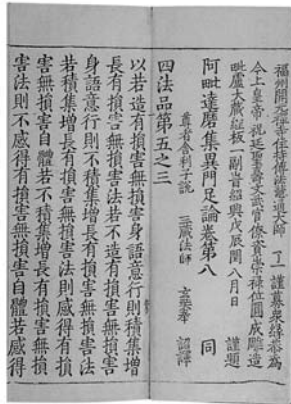 福州開元禪寺住持傳法慧通大師 了一 謹募衆緣恭為
今上皇帝祝延聖壽文武官僚資崇祿位圓成雕造
毗盧大藏經板一副旹紹興戊辰閏八月日 謹題
阿毗達磨集異門足論卷第八 同
尊者舍利子說 三藏法師 玄奘奉 詔譯
四法品第五之三
以若造有損害無損害身語意行則積集增
長有損害無損害法若不造有損害無損害
身語意行則不積集增長有損害無損害法
若積集增長有損害無損害法則感得有損
害無損害自體若不積集增長有損害無損
害法則不感得有損害無損害自體若感得